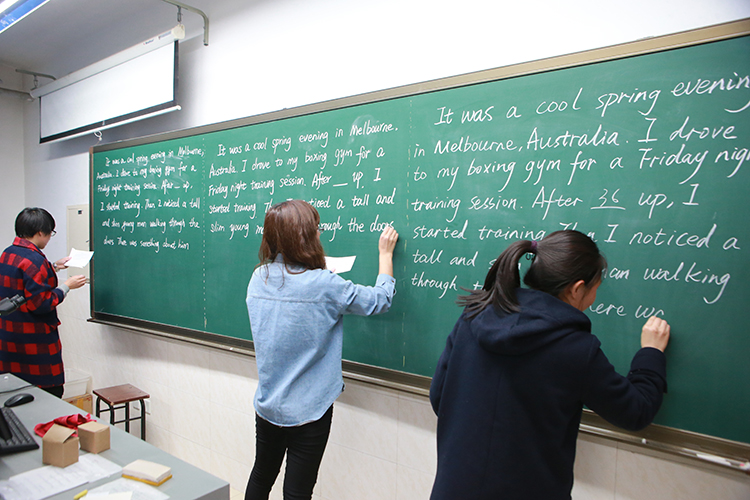 It was a cool spring evening in Melbourne,
Australia. I drove to my boxing gym for a
Friday night training session. After up,
I started training. Then I noticed a tall
and slim young man walking through the
doors. There was something about him
It was a cool spring evening in Melbourne.
Australia. I drove to my boxing gym for a
Friday night training session. After __ up, I
started training. Then I noticed a tall and
slim young through the doors
It was a cool spring evening
in Melbourne, Australia. I drove
to my boxing gym for a Friday night
training session. After 36 up, I
started training. Then I noticed a
tall and an walking
through
here wa